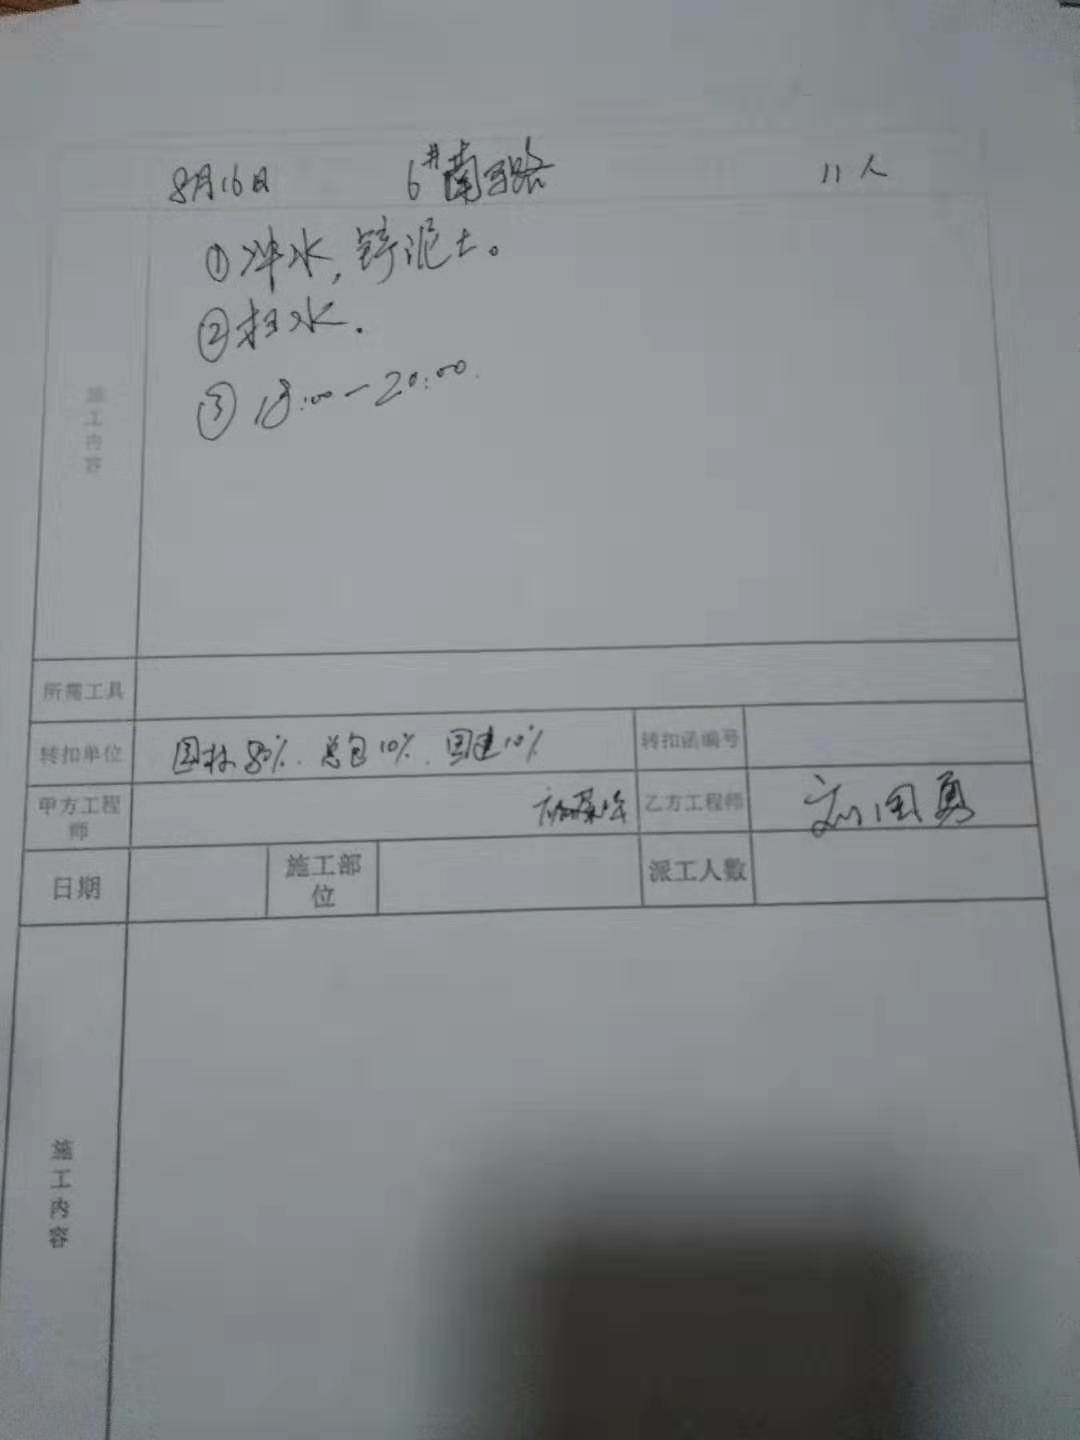 8月16日 6#南马路 11人
施工内容
①冲水,铲泥土。
②扫水.
③18:00-20:00.
所需工具
转扣单位 园林80%.总包10%.国建10% 转扣函编号
甲方工程师 乙方工程师 刘国勇
日期 施工部位 派工人数
施工内容